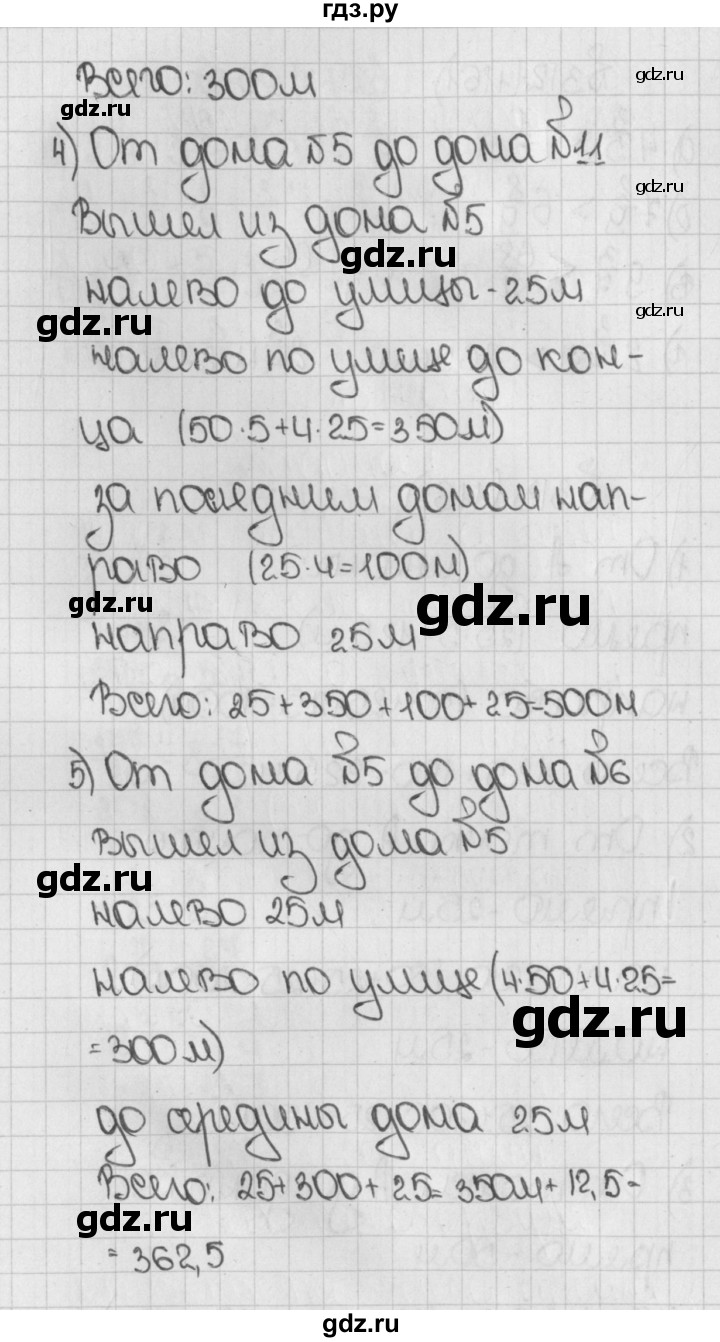 гдз.ру
Всего: 300м
gdz.ru
gdz.ru
4) От дома №5 до дома №11
gdz.ru
Вышел из дома №5
gdz.ru
налево до улицы - 25м
gdz.ru
gdz.ru
налево по улице до кон-
ца (50·5+4·25=350м)
за последним домом нап-
раво (25·4=100м)
gdz.ru
gdz.ru
направо 25м
Всего: 25+350+100+25=500м
5) От дома №5 до дома №6
Вышел из дома №5
gdz.ru
налево 25м
налево по улице (4·50+4·25=
gdz.ru
=300м)
до середины дома 25м
Всего: 25+300+25=350м+12,5=
gdz.ru
= 362,5
gdz.ru